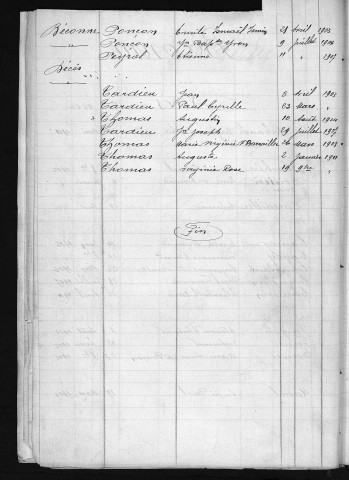 Reconn. Ponçon Emile Ismaël Firmin 21 Avril 1903
" Ponçon Jn Bapte Yvon 9 Juillet 1905
" Peyrol Etienne 11 " 1907
Décès
Tardieu Jean 5 Avril 1903
Tardieu Paul Cyrille 23 Mars "
" Thomas Augustin 10 Août 1904
Tardieu Jh Joseph 29 Juillet 1907
Thomas Marie Virginie Vve 26 Mars 1908
Thomas Auguste 2 Janvier 1911
Thomas Virginie Rose 19 9bre "
Fin